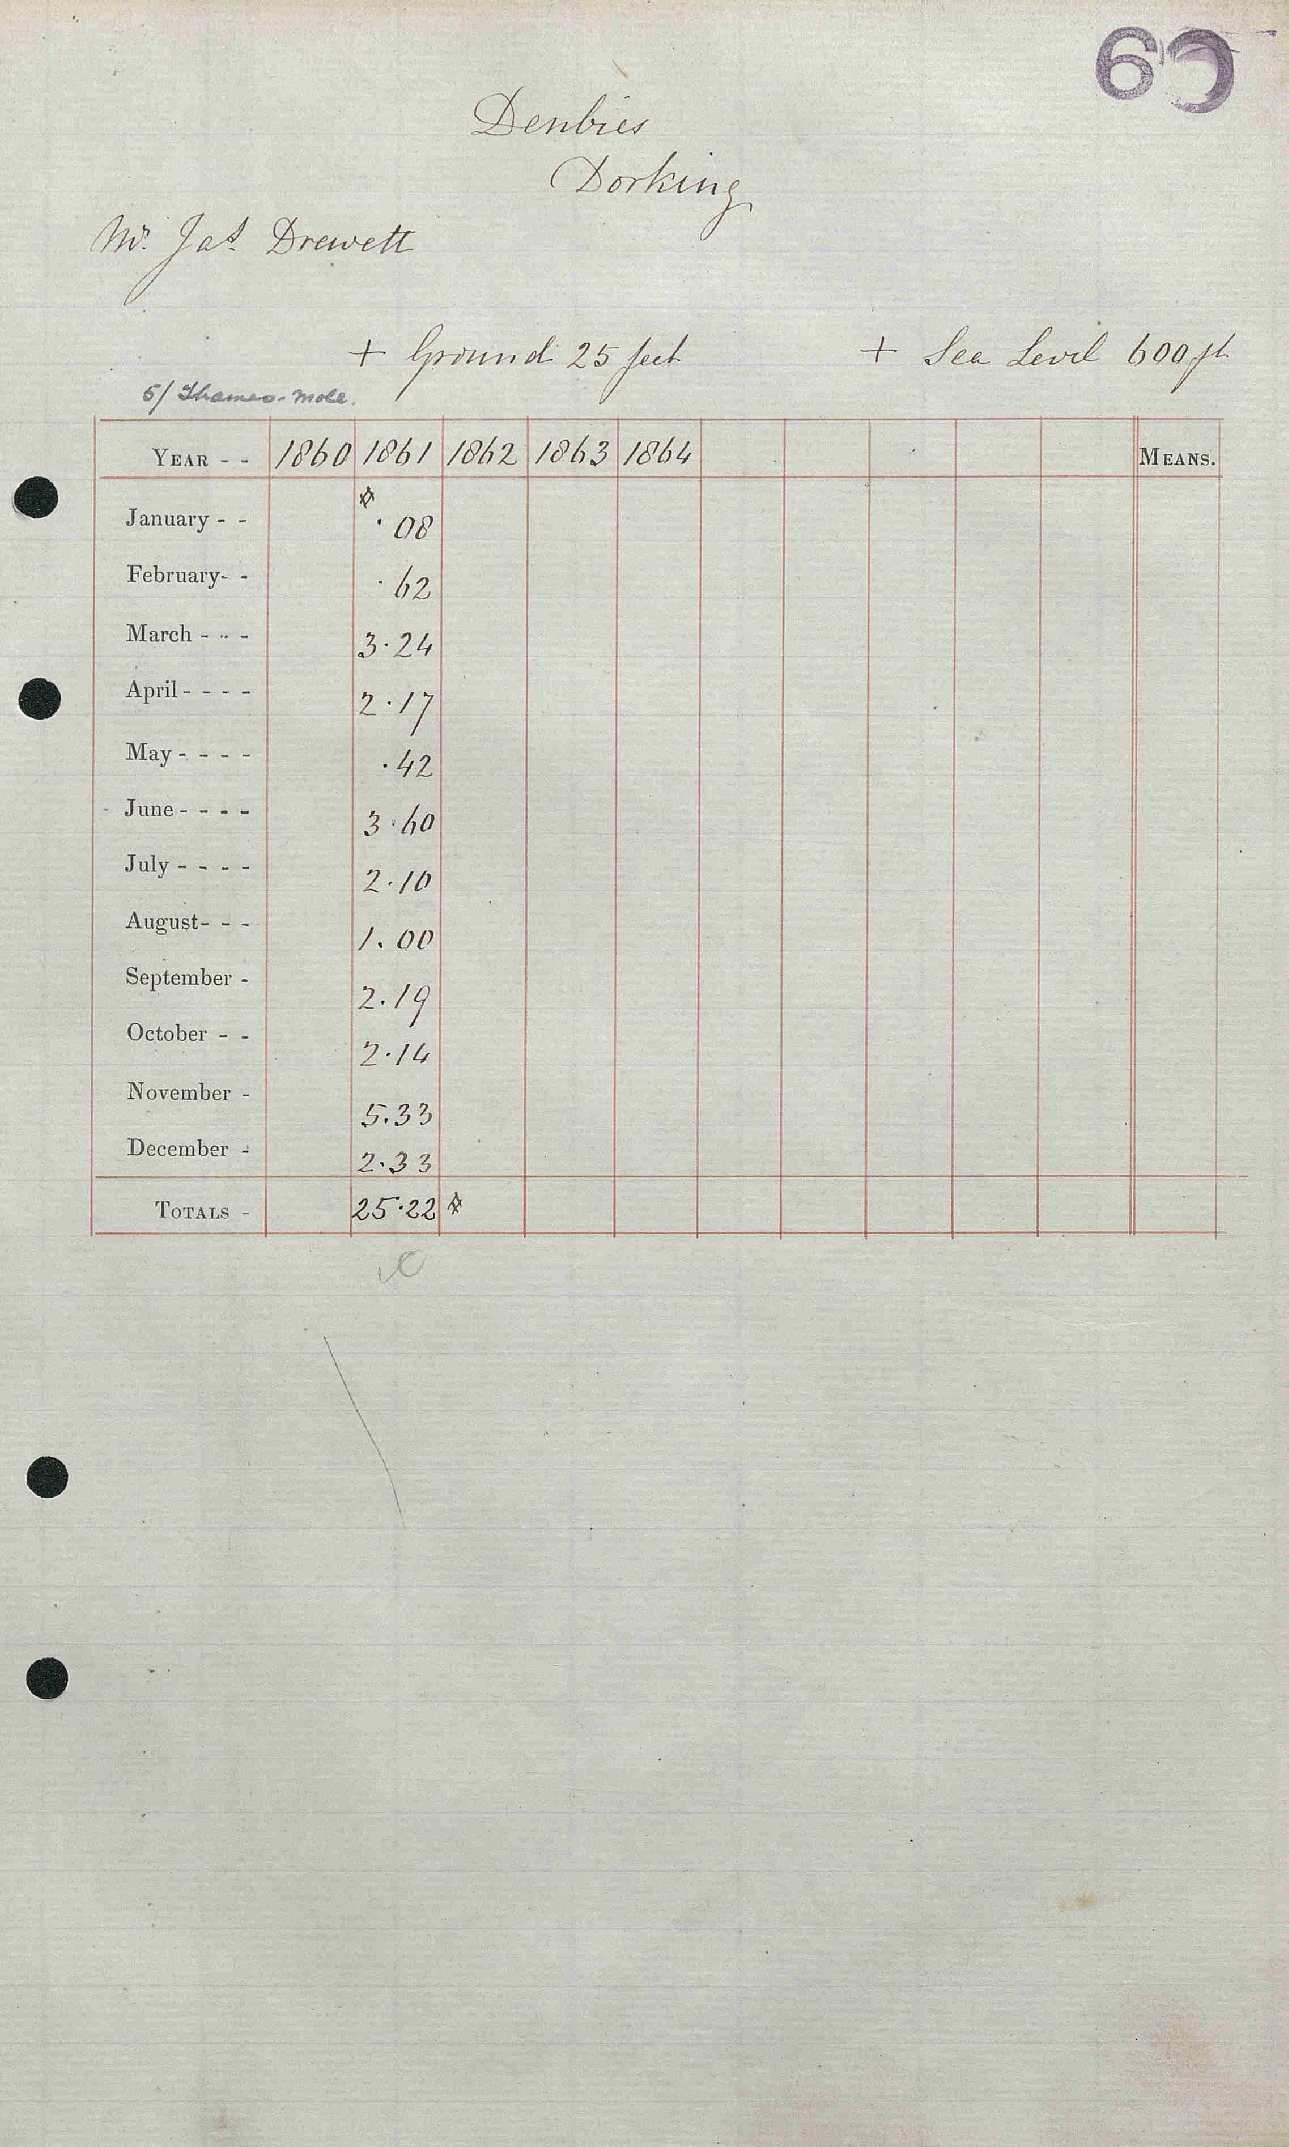 60
Denbies
Dorking
Mr. Jas. Drewett
+ Ground 25 feet + Sea Level 600 ft
5/ Thames-Mole.
YEAR - - 1860 1861 1862 1863 1864 MEANS.
January - - .08
February- - .62
March - - - 3.24
April - - - - 2.17
May - - - - .42
June - - - - 3.60
July - - - - 2.10
August- - - 1.00
September - 2.19
October - - 2.14
November - 5.33
December - 2.33
TOTALS - 25.22